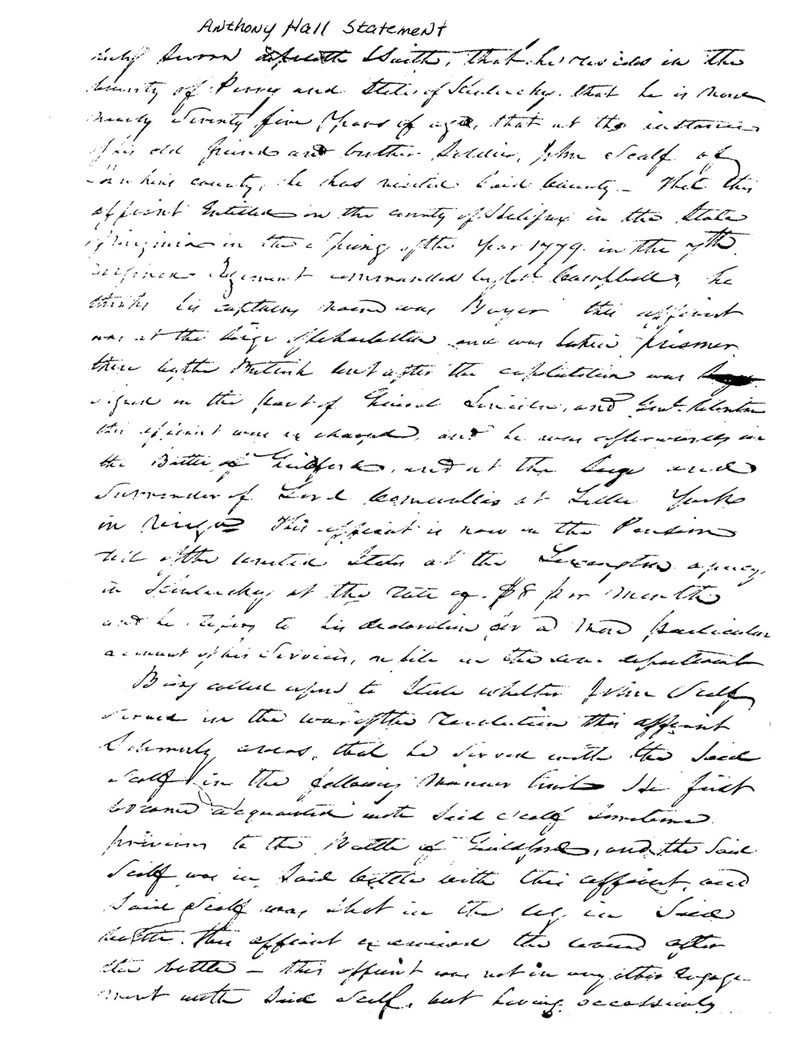 Anthony Hall Statement
duly sworn deposeth & saith, that he resides in the
County of Perry and State of Kentucky. that he is now
nearly Seventy five Years of age, that at the instance
of his old friend and brother Soldier, John Scalf of
Hawkins county, he has visited said County – That this
affiant Enlisted in the county of Halifax in the State
of Virginia in the Spring of the Year 1779. in the 7th
Regiment commanded by Col. Campbell, he
thinks his captains name was Boyer this affiant
was at the siege of Charleston and was taken prisoner
there by the British but after the capitulation was
signed on the part of General Lincoln, and Genl. Clinton
this affiant was exchanged, and he was afterwards in
the Battle of Guilford, and at the siege and
Surrender of Lord Cornwallis at Little York
in Virga This affiant is now on the Pension
roll of the United States at the Lexington agency
in Kentucky at the rate of $8 per Month
and he refers to his declaration for a more particular
account of his Services, on file in the war department
Being called upon to State whether John Scalf
served in the war of the revolution this affiant
Solemnly avers, that he served with the said
Scalf in the following manner He first
became acquainted with said Scalf sometime
previous to the Battle of Guilford, and the said
Scalf was in said battle with this affiant, and
said Scalf was shot in the leg in said
battle. this affiant examined the wound after
the battle – this affiant was not in any other engage-
ment with said Scalf, but having occasionly